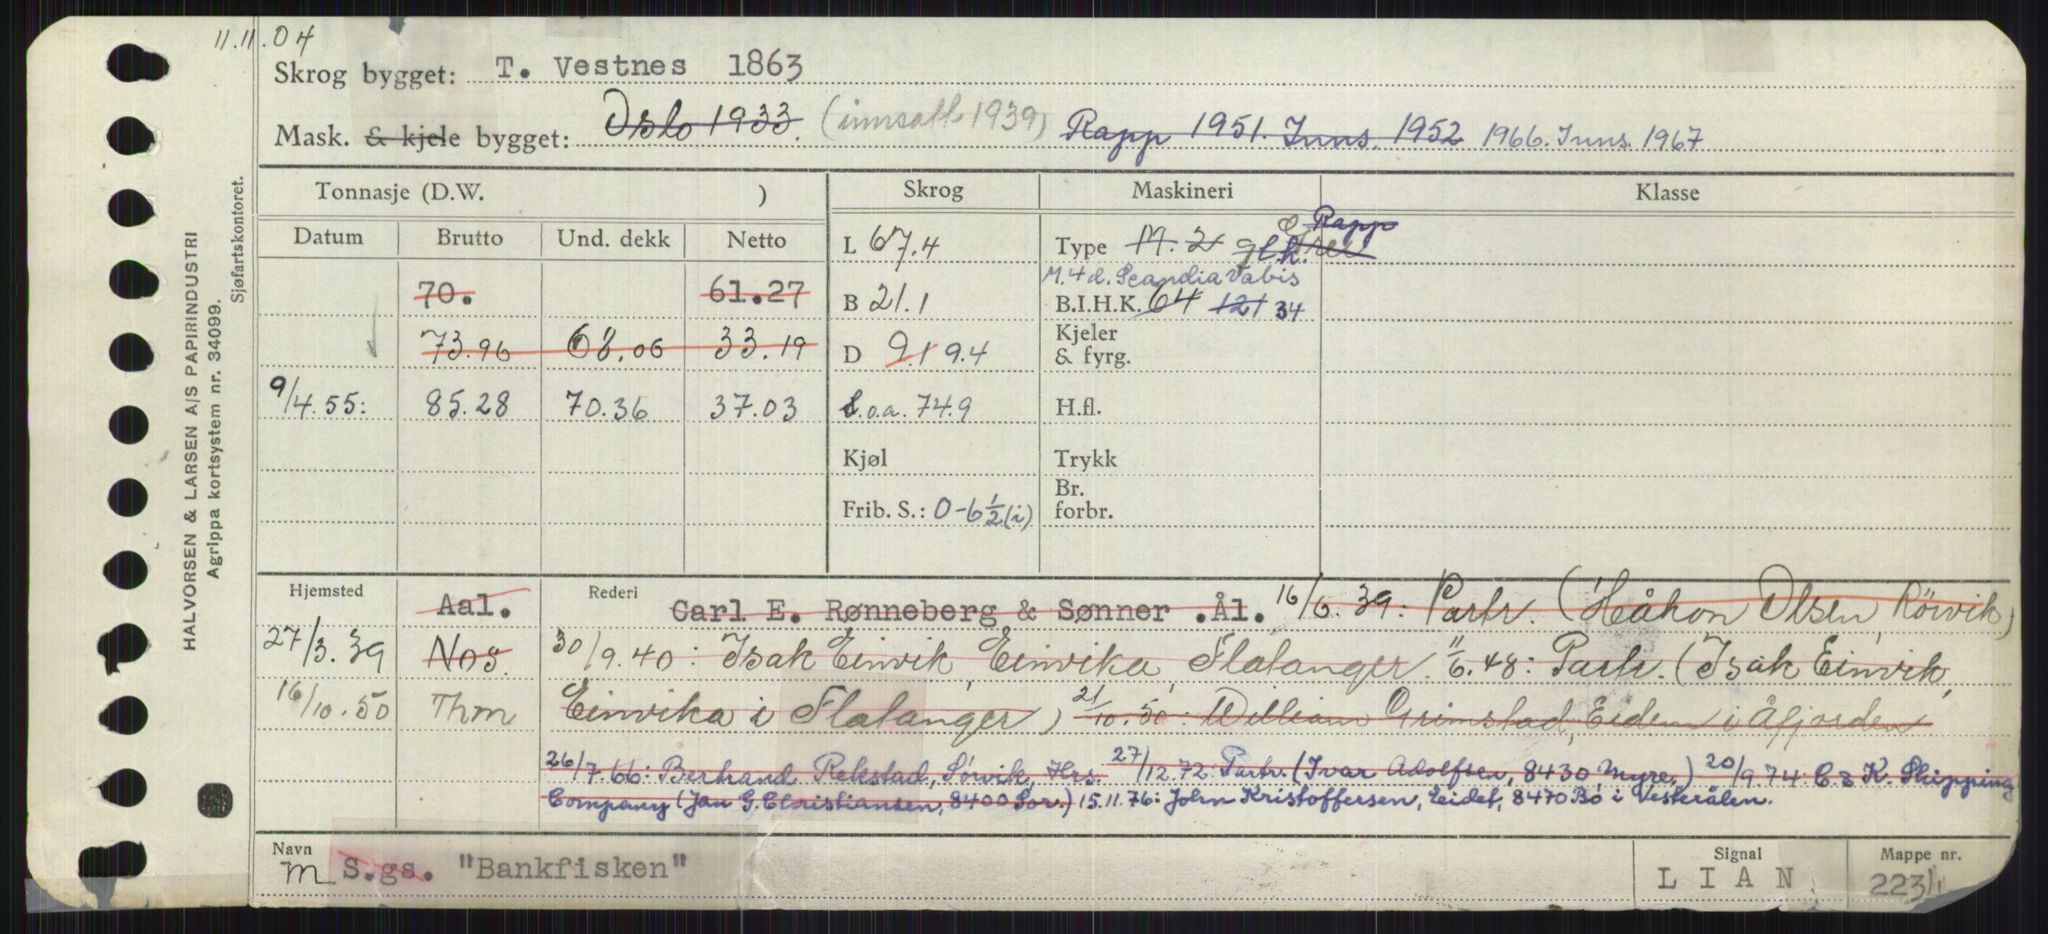 11.11.04
Skrog bygget: T. Vestnes 1863
Mask. & kjele bygget: Oslo 1933. (innsatt 1939) Rapp 1951. Inns. 1952 1966. Inns. 1967
Tonnasje (D.W. ) Skrog Maskineri Klasse
Datum Brutto Und. dekk Netto L 67.4 Type M. 2 Rapp
M. 4 d. Scandia Vabis
70. 61.27 B 21.1 B.I.H.K. 64 121 34
73.96 68.06 33.19 D 9.1 9.4 Kjeler & fyrg.
9/4.55: 85.28 70.36 37.03 L.o.a. 74.9 H.fl.
Kjøl Trykk
Frib. S.: 0-6 1/2 (i) Br. forbr.
Hjemsted Aal. Rederi Carl E. Rønneberg & Sønner .Ål. 16/6.39: Partr. (Håkon Olsen, Rörvik)
27/3.39 Nos. 30/9.40: Isak Einvik, Einvika, Flatanger. 11/6.48: Partr. (Isak Einvik,
16/10.50 Thm Einvika i Flatanger) 21/10.50: William Grimstad, Eidem i Åfjorden
26/7.66: Bertrand Rekstad, Sørvik, Hrs. 27/12.72: Partr. (Ivar Adolfsen, 8430 Myre.) 20/9.74: C & K. Shipping
Company (Jan G. Christiansen, 8400 Sor.) 15.11.76: John Kristoffersen, Eidet, 8470 Bø i Vesterålen.
Navn m S.gs. "Bankfisken" Signal L I A N Mappe nr. 223/1
HALVORSEN & LARSEN A/S PAPIRINDUSTRI
Agrippa kortsystem nr. 34099.
Sjøfartskontoret.